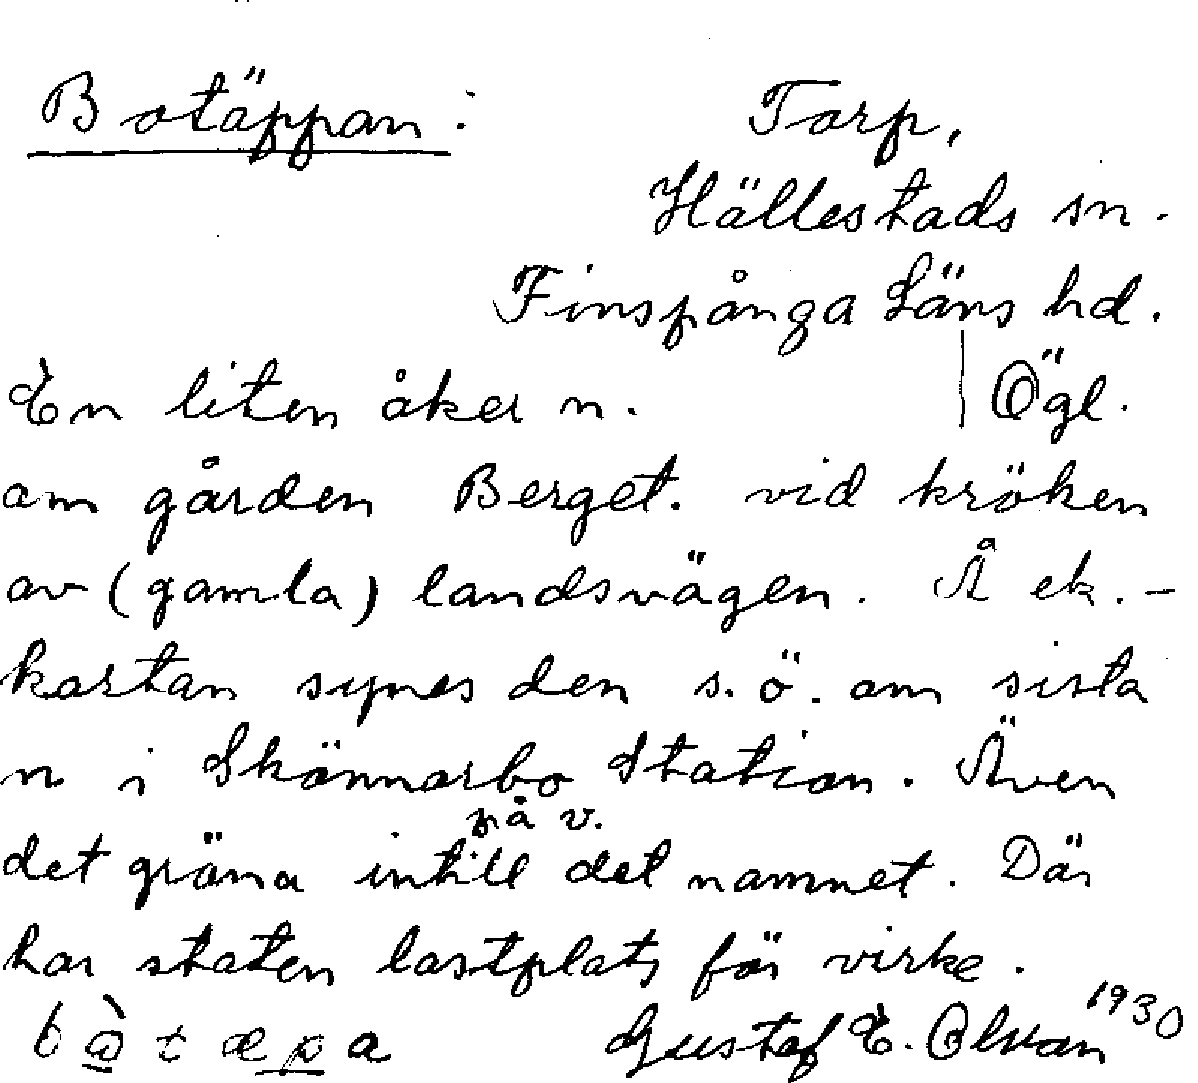 Botäppan: Torp,
Hällestads sn.
Finspånga Läns hd.
En liten åker n. Ögl.
om gården Berget. vid kröken
av (gamla) landsvägen. Å ek.-
kartan synes den s.ö. om sista
n i Skönnarbo Station. Även
på v.
det gröna intill det namnet. Där
har staten lastplats för virke.
1930
Gustaf E.